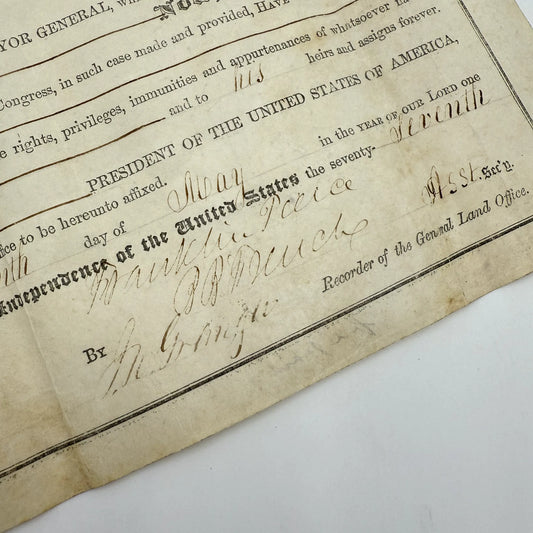 YOR GENERAL,
NOW
Congress, in such case made and provided, HAVE
e rights, privileges, immunities and appurtenances of whatsoever
and to his heirs and assigns forever.
PRESIDENT OF THE UNITED STATES OF AMERICA,
fice to be hereunto affixed.
day of May in the YEAR OF OUR LORD one
Independence of the United States the seventy-seventh
Franklin Pierce
Asst. Sec'y.
By
Recorder of the General Land Office.